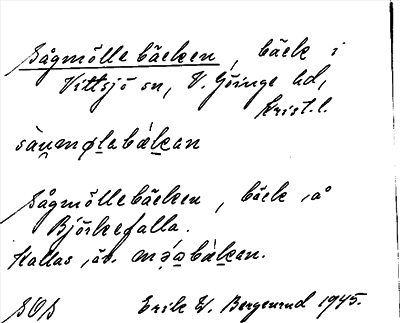 Sågmöllebäcken, bäck i
Vittsjö sn, V. Göinge hd,
Krist. l.
såu̯mø̀labæ̀kan
Sågmöllebäcken, bäck å
Björkefalla.
Kallas äv.
SOS Erik W. Bergenrud 1945.